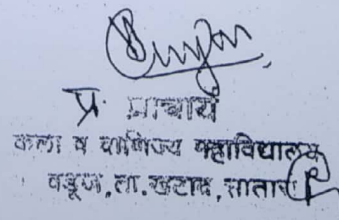 प्र. प्राचार्य
कला व वाणिज्य महाविद्यालय
वडूज, ता. खटाव, सातारा